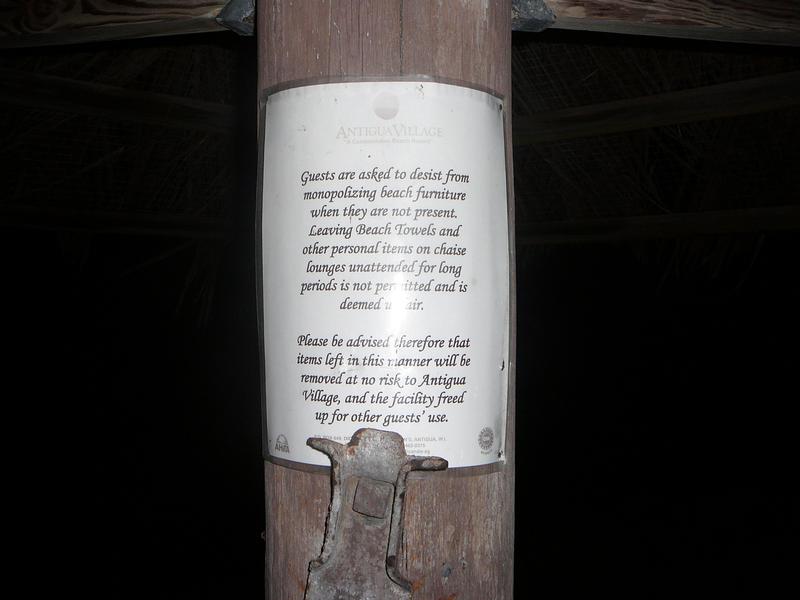 ANTIGUA VILLAGE
"A Condominium Beach Resort"
Guests are asked to desist from
monopolizing beach furniture
when they are not present.
Leaving Beach Towels and
other personal items on chaise
lounges unattended for long
periods is not permitted and is
deemed unfair.
Please be advised therefore that
items left in this manner will be
removed at no risk to Antigua
Village, and the facility freed
up for other guests' use.
ANTIGUA, W.I.
AHTA